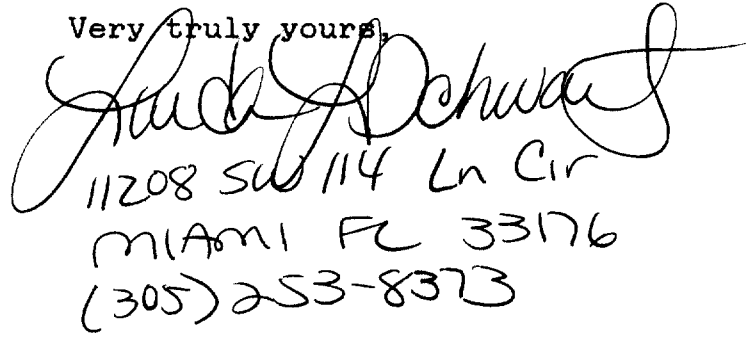 Very truly yours,
Linda J Schwartz
11208 SW 114 Ln Cir
MIAMI FL 33176
(305) 253-8373